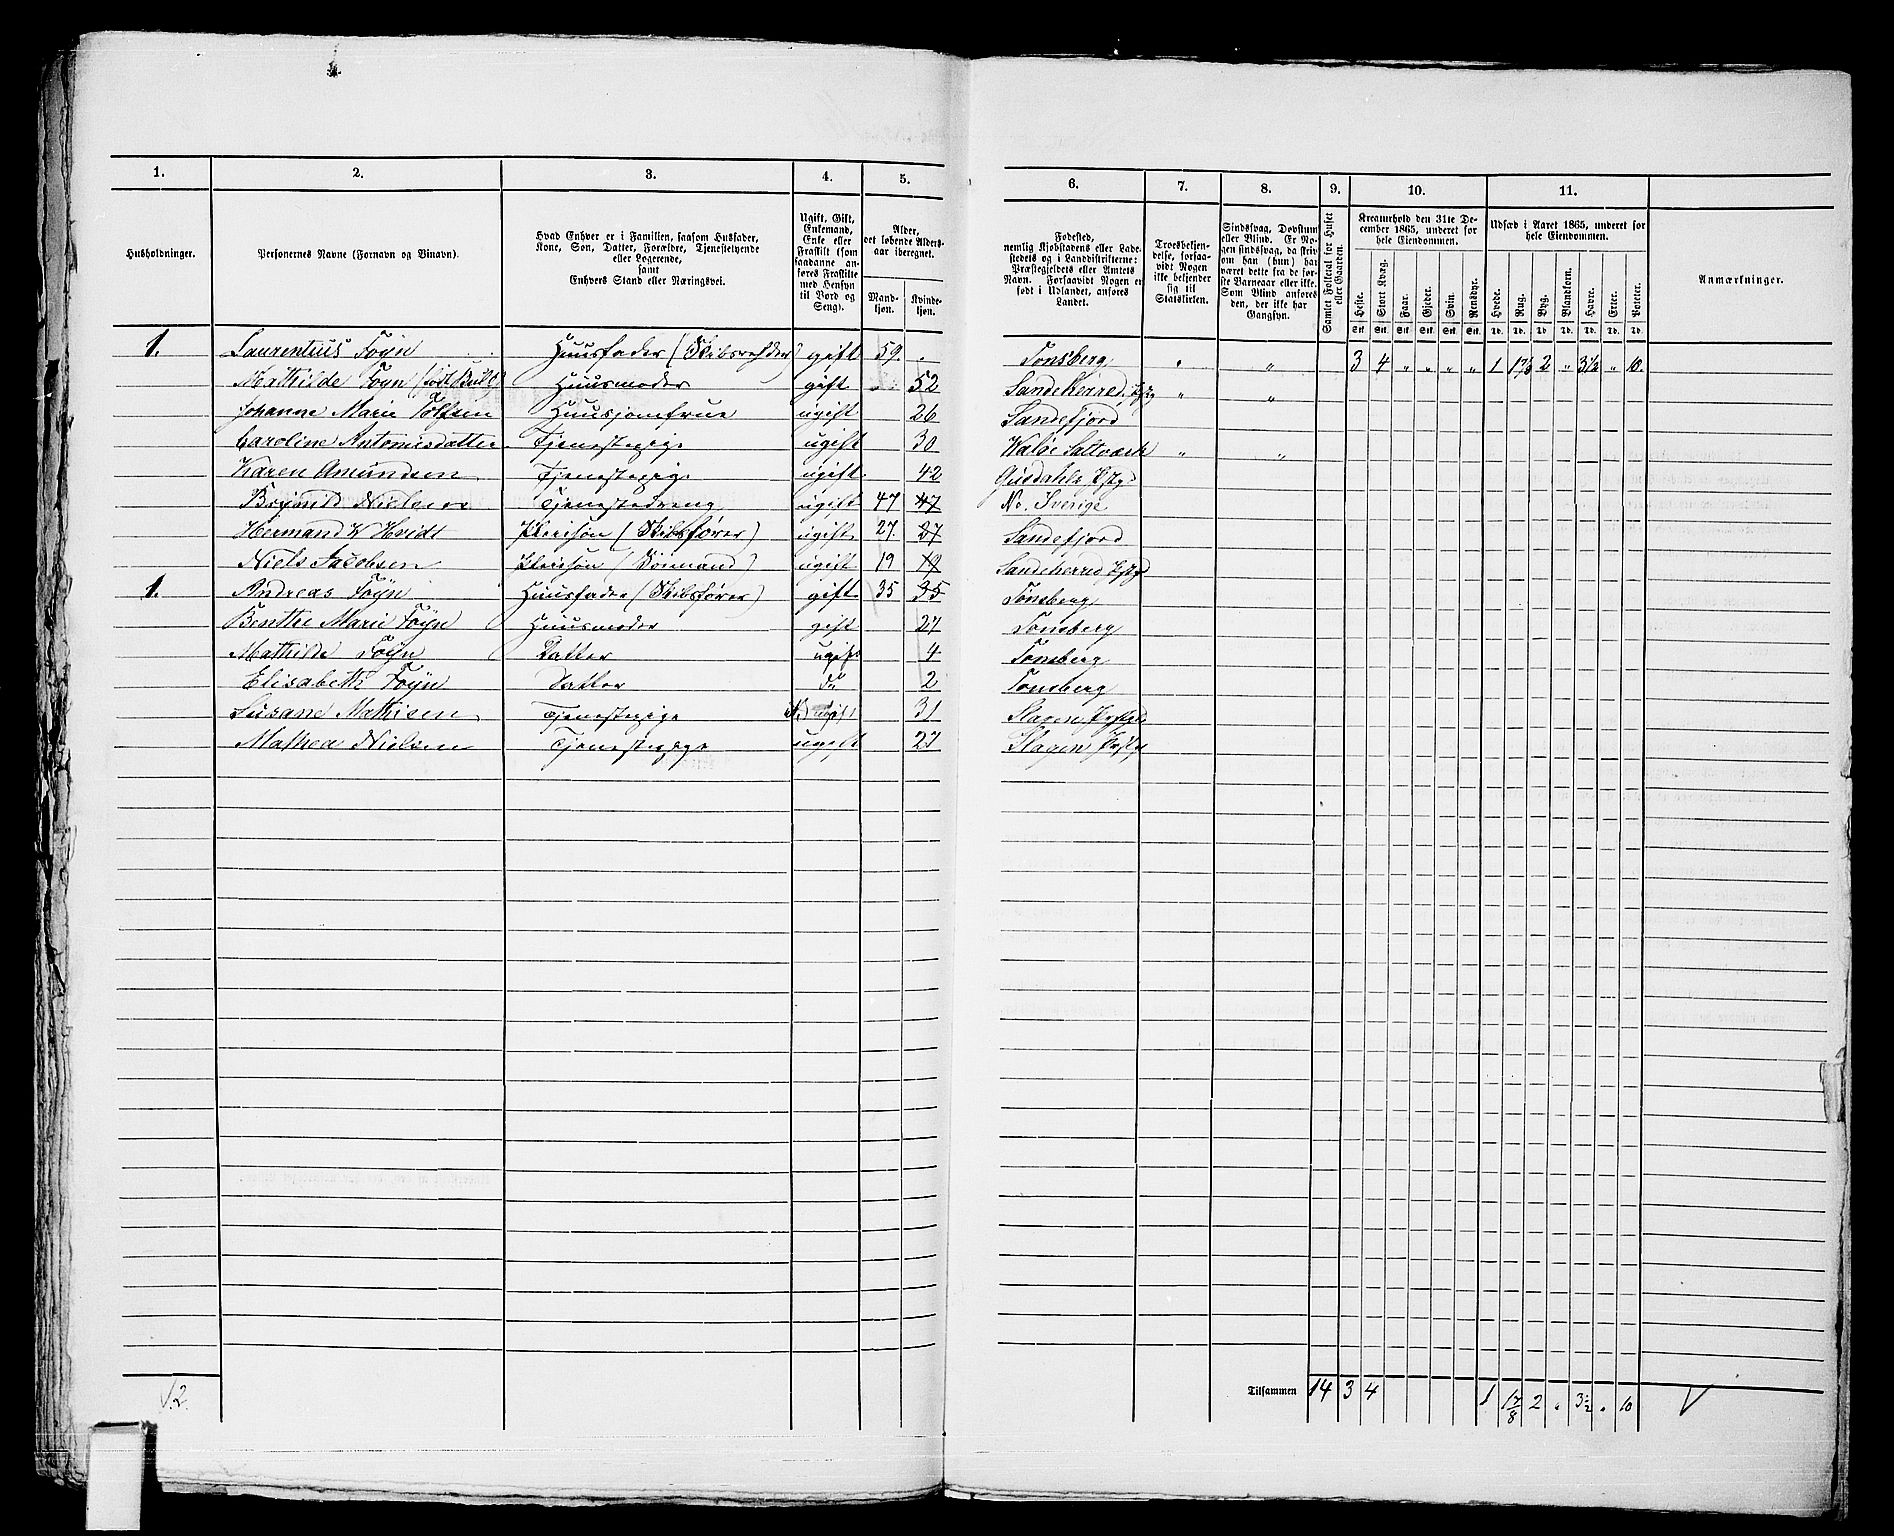 1. 2. 3. 4. 5. 6. 7. 8. 9. 10. 11.
Husholdninger.
Personernes Navne (Fornavn og Binavn).
Hvad Enhver er i Familien, saasom Husfader,
Kone, Søn, Datter, Forældre, Tjenestetyende
eller Logerende,
samt
Enhvers Stand eller Næringsvei.
Ugift, Gift,
Enkemand,
Enke eller
Fraskilt (som
saadanne an-
føres Fraskilte
med Hensyn
til Bord og
Seng).
Alder,
det løbende Alders-
aar iberegnet.
Mand-
kjøn.
Kvinde-
kjøn.
Fødested,
nemlig Kjøbstadens eller Lade-
stedets og i Landdistrikterne:
Præstegjeldets eller Amtets
Navn. Forsaavidt Nogen er
født i Udlandet, anføres
Landet.
Troesbekjen-
delse, forsaa-
vidt Nogen
ikke bekjender
sig til
Statskirken.
Sindssvag, Døvstum
eller Blind. Er No-
gen sindssvag, da skriv
om han (hun) har
været dette fra de før-
ste Barneaar eller ikke.
Som Blind anføres
den, der ikke har
Gangsyn.
Samlet Folketal for Huset
eller Gaarden.
Kreaturhold den 31te De-
cember 1865, underet for
hele Eiendommen.
Heste. Stort Kvæg. Faar. Gjeder. Svin. Rensdyr.
Stk. Stk. Stk. Stk. Stk. Stk.
Udsæd i Aaret 1865, underet for
hele Eiendommen.
Hvede. Rug. Byg. Blandkorn. Havre. Erter. Poteter.
Td. Td. Td. Td. Td. Td. Td.
Anmærkninger.
1. Laurentius Foyn Huusfader (Skibsrehder) gift 59. Tønsberg " " 3 4 " " " " 1 1⅞ 2 " 3½ " 10.
Mathilde Foyn (født Bull) Huusmoder gift 52 Sandeherred " "
Johanne Marie Huusjomfrue ugift 26 Sandefjord
Caroline Antonisdatter Tjenestepige ugift 30 Waløe Saltværk " "
Karen Amundsen Tjenestepige ugift 42
Nielsen Tjenestedreng ugift 47 47 Sverige
Hermand Hvidt (Skibsfører) ugift 27. 27 Sandefjord
Niels Jacobsen (Sømand) ugift 19 19 Sandeherred
1. Andreas Foyn Huusfader (Skibsfører) gift 35 35 Tønsberg
Benthe Marie Foyn Huusmoder gift 27 Tønsberg
Mathilde Foyn Datter ugift 4 Tønsberg
Elisabeth Foyn Datter do 2 Tønsberg
Susane Mathisen Tjenestepige ugift 31 Slagen
Mathea Nielsen Tjenestepige ugift 27 Slagen
12. Tilsammen 14 3 4 1 1⅞ 2 " 3½ " 10